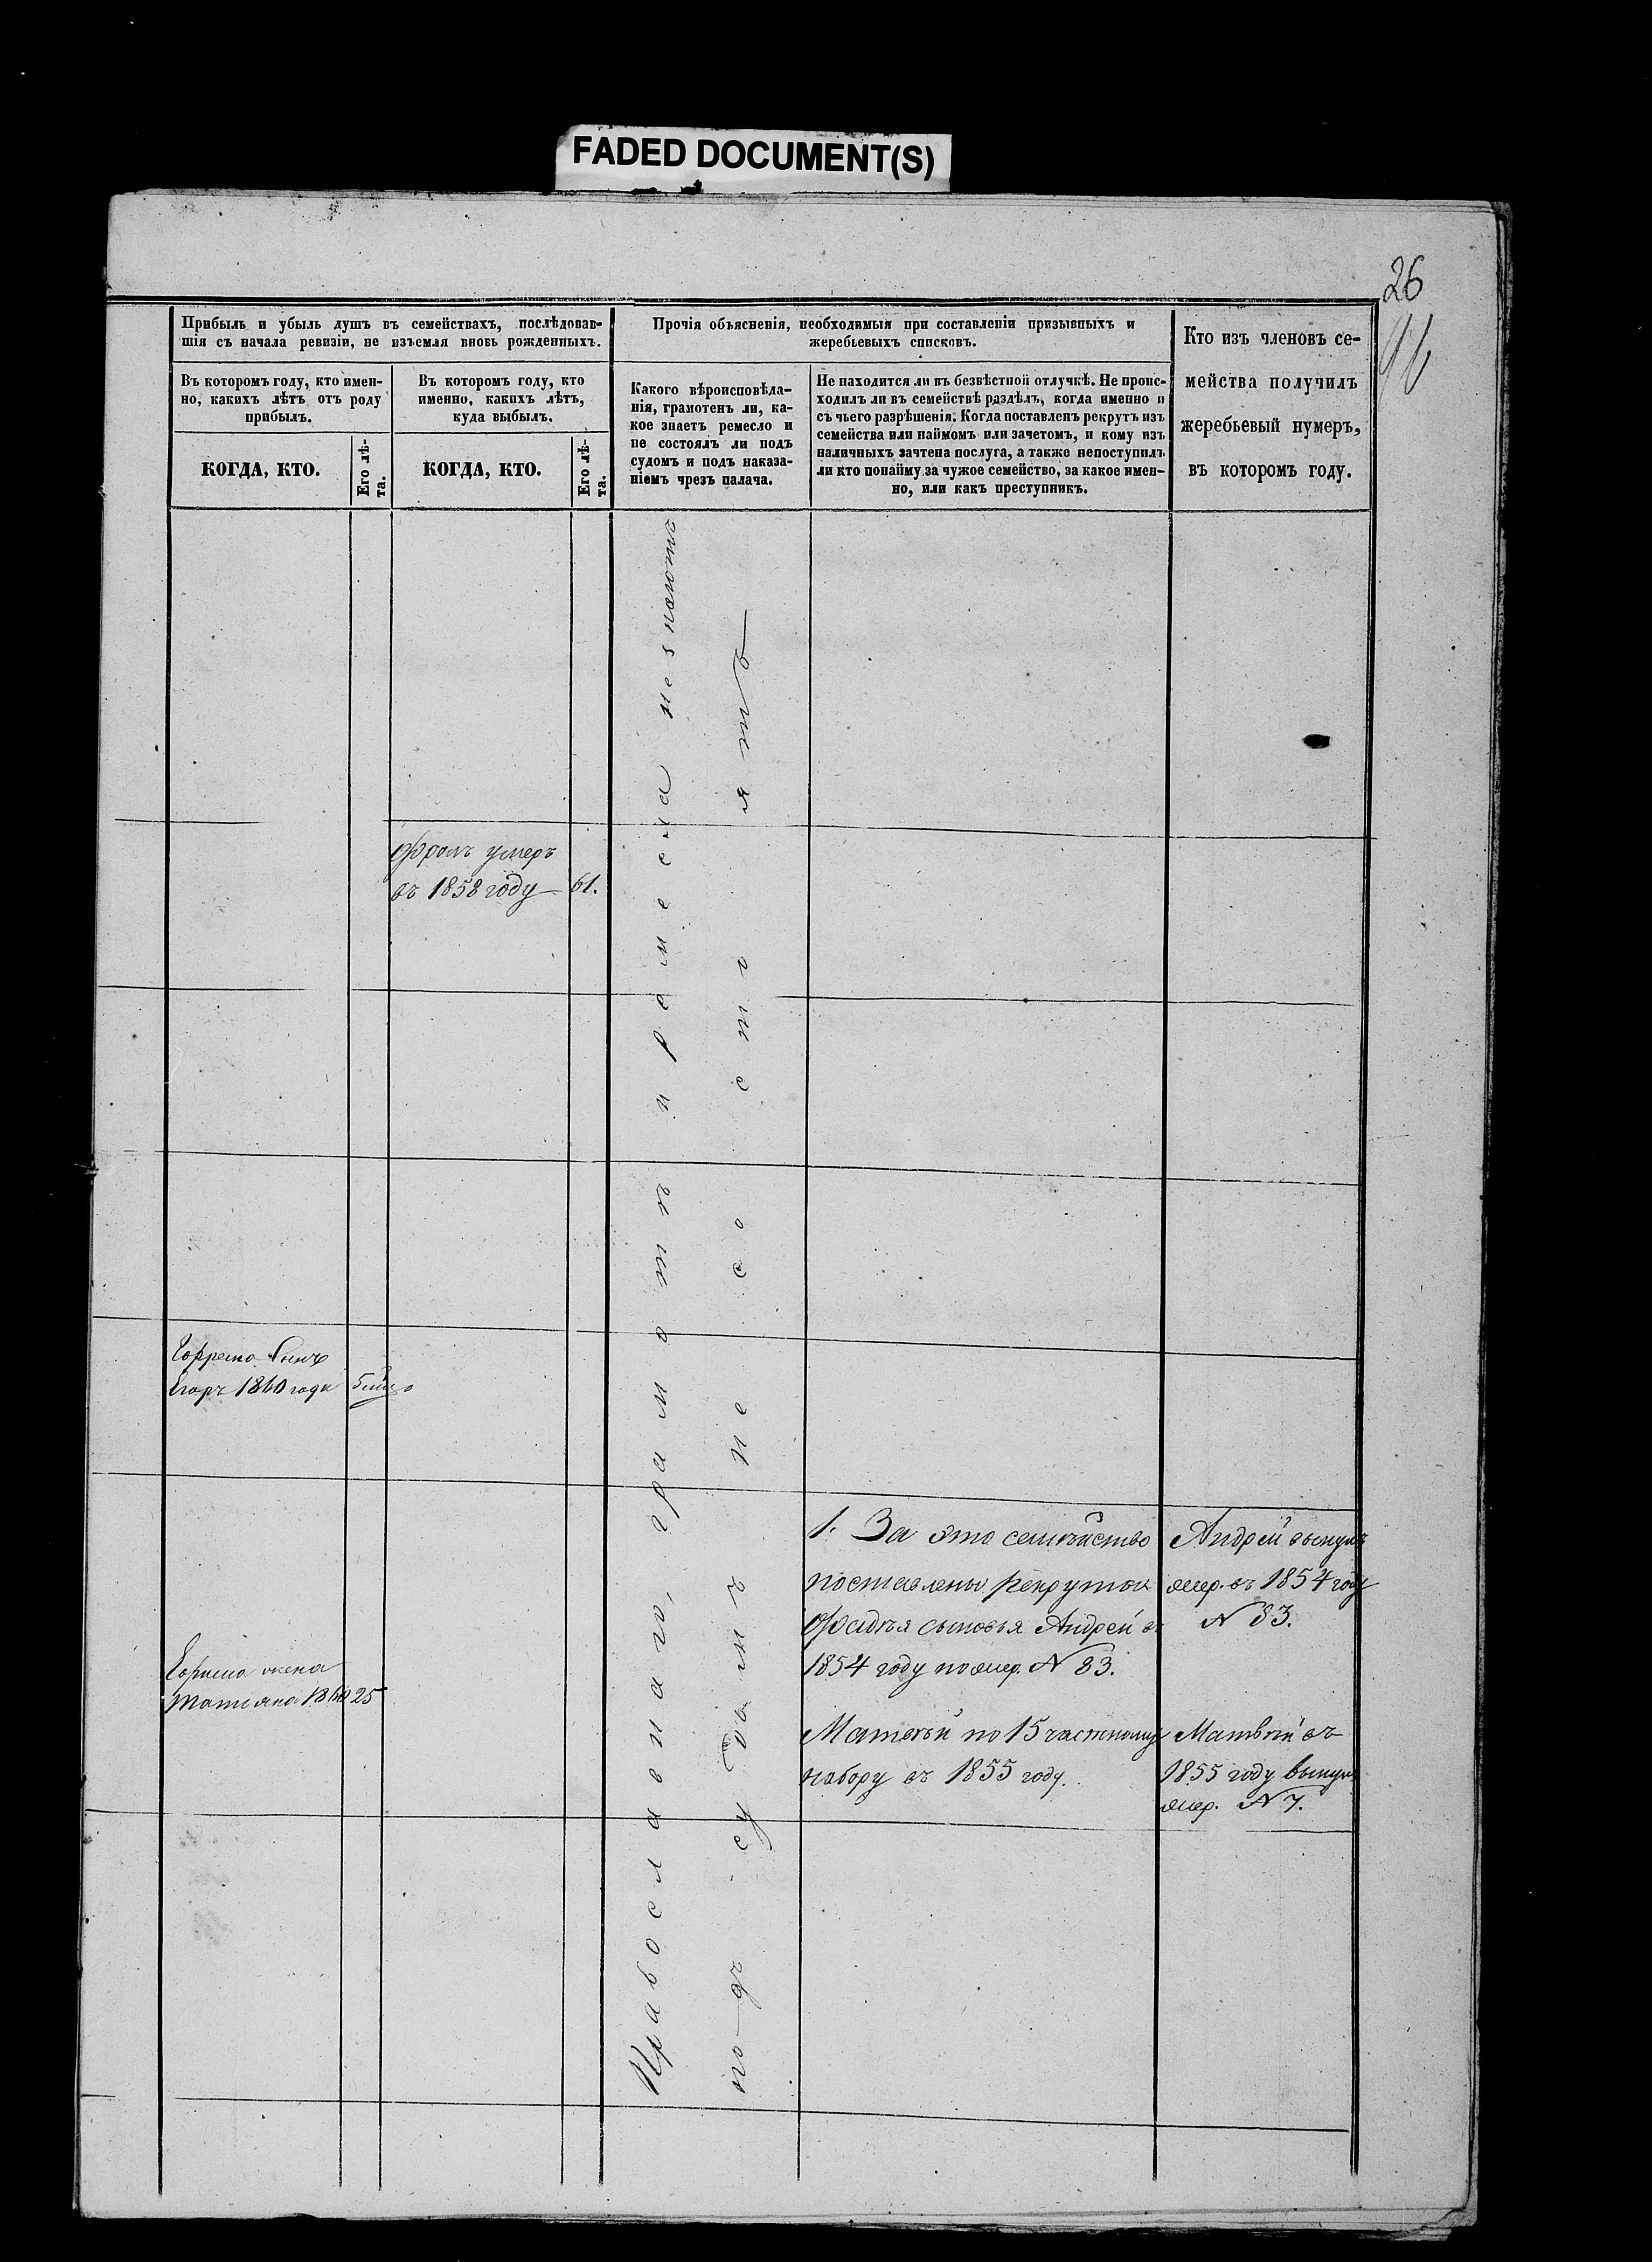 FADED DOCUMENT(S)
26
Прибыль и убыль душъ въ семействахъ, послѣдовав-
шія съ начала ревизіи, не изъемля вновь рожденныхъ.
Въ которомъ году, кто имен-
но, какихъ лѣтъ отъ роду
прибылъ.
КОГДА, КТО.
Его лѣ-
та.
Въ которомъ году, кто
именно, какихъ лѣтъ,
куда выбылъ.
КОГДА, КТО.
Его лѣ-
та.
Прочія объясненія, необходимыя при составленіи призывныхъ и
жеребьевыхъ списковъ.
Какого вѣроисповѣда-
нія, грамотенъ ли, ка-
кое знаетъ ремесло и
не состоялъ ли подъ
судомъ и подъ наказа-
ніемъ чрезъ палача.
Не находится ли въ безвѣстной отлучкѣ. Не проис-
ходилъ ли въ семействѣ раздѣлъ, когда именно и
съ чьего разрѣшенія. Когда поставленъ рекрутъ изъ
семейства или наймомъ или зачетомъ, и кому изъ
наличныхъ зачтена послуга, а также непоступилъ
ли кто понайму за чужое семейство, за какое имен-
но, или какъ преступникъ.
Кто изъ членовъ се-
мейства получилъ
жеребьевый нумеръ,
въ которомъ году.
умеръ
въ 1858 году 61.
1860 года
жена
Татіяна 1860 25
Православнаго, грамотѣ и ремесла незнаютъ
подъ судомъ не состоятъ
1. За это семѣйство
поставлены рекруты
Фадѣя сыновья Андрей въ
1854 году по жер. N 83.
Матвѣй по 15 частному
набору въ 1855 году.
Андрей вынулъ
жер. въ 1854 году
N 83.
Матвѣй въ
1855 году вынулъ
жер. N 7.